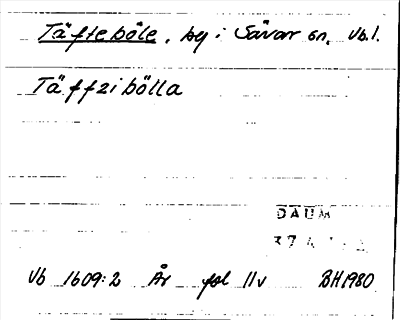 Täfteböle, by i Sävar sn, Vb.l.
Täffzibölla
DAUM
Vb 1609:2 År fol 11v BH 1980